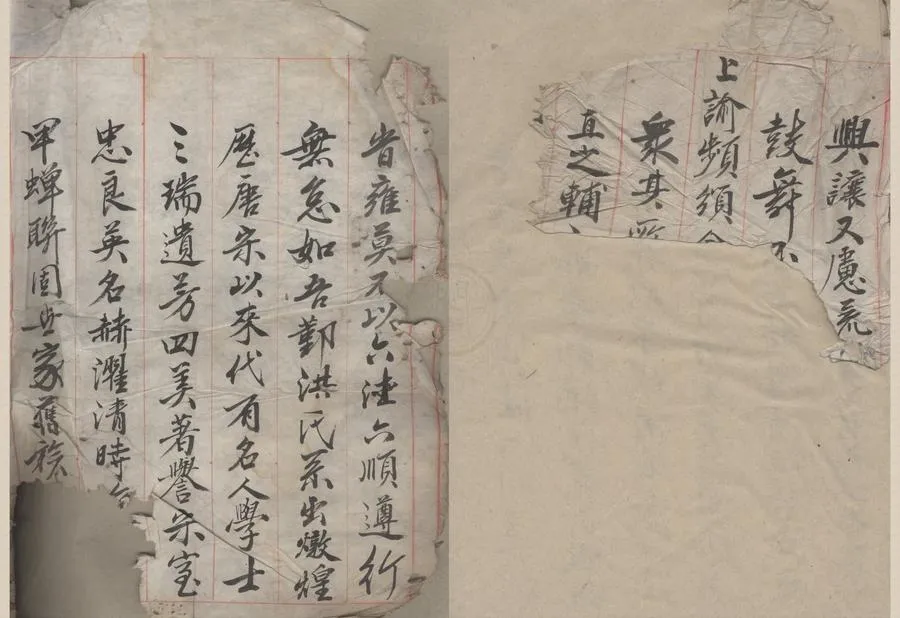 興讓又慮荒
鼓舞不
上諭頻頒
衆其所
直之輔
旹雍莫不以六六順遵行
無怠如吾勤洪氏系出燉煌
歷唐宋以來代有名人學士
三瑞遺芳四美著譽宋室
忠良英名赫濯清時
甲蟬聯固世家舊族